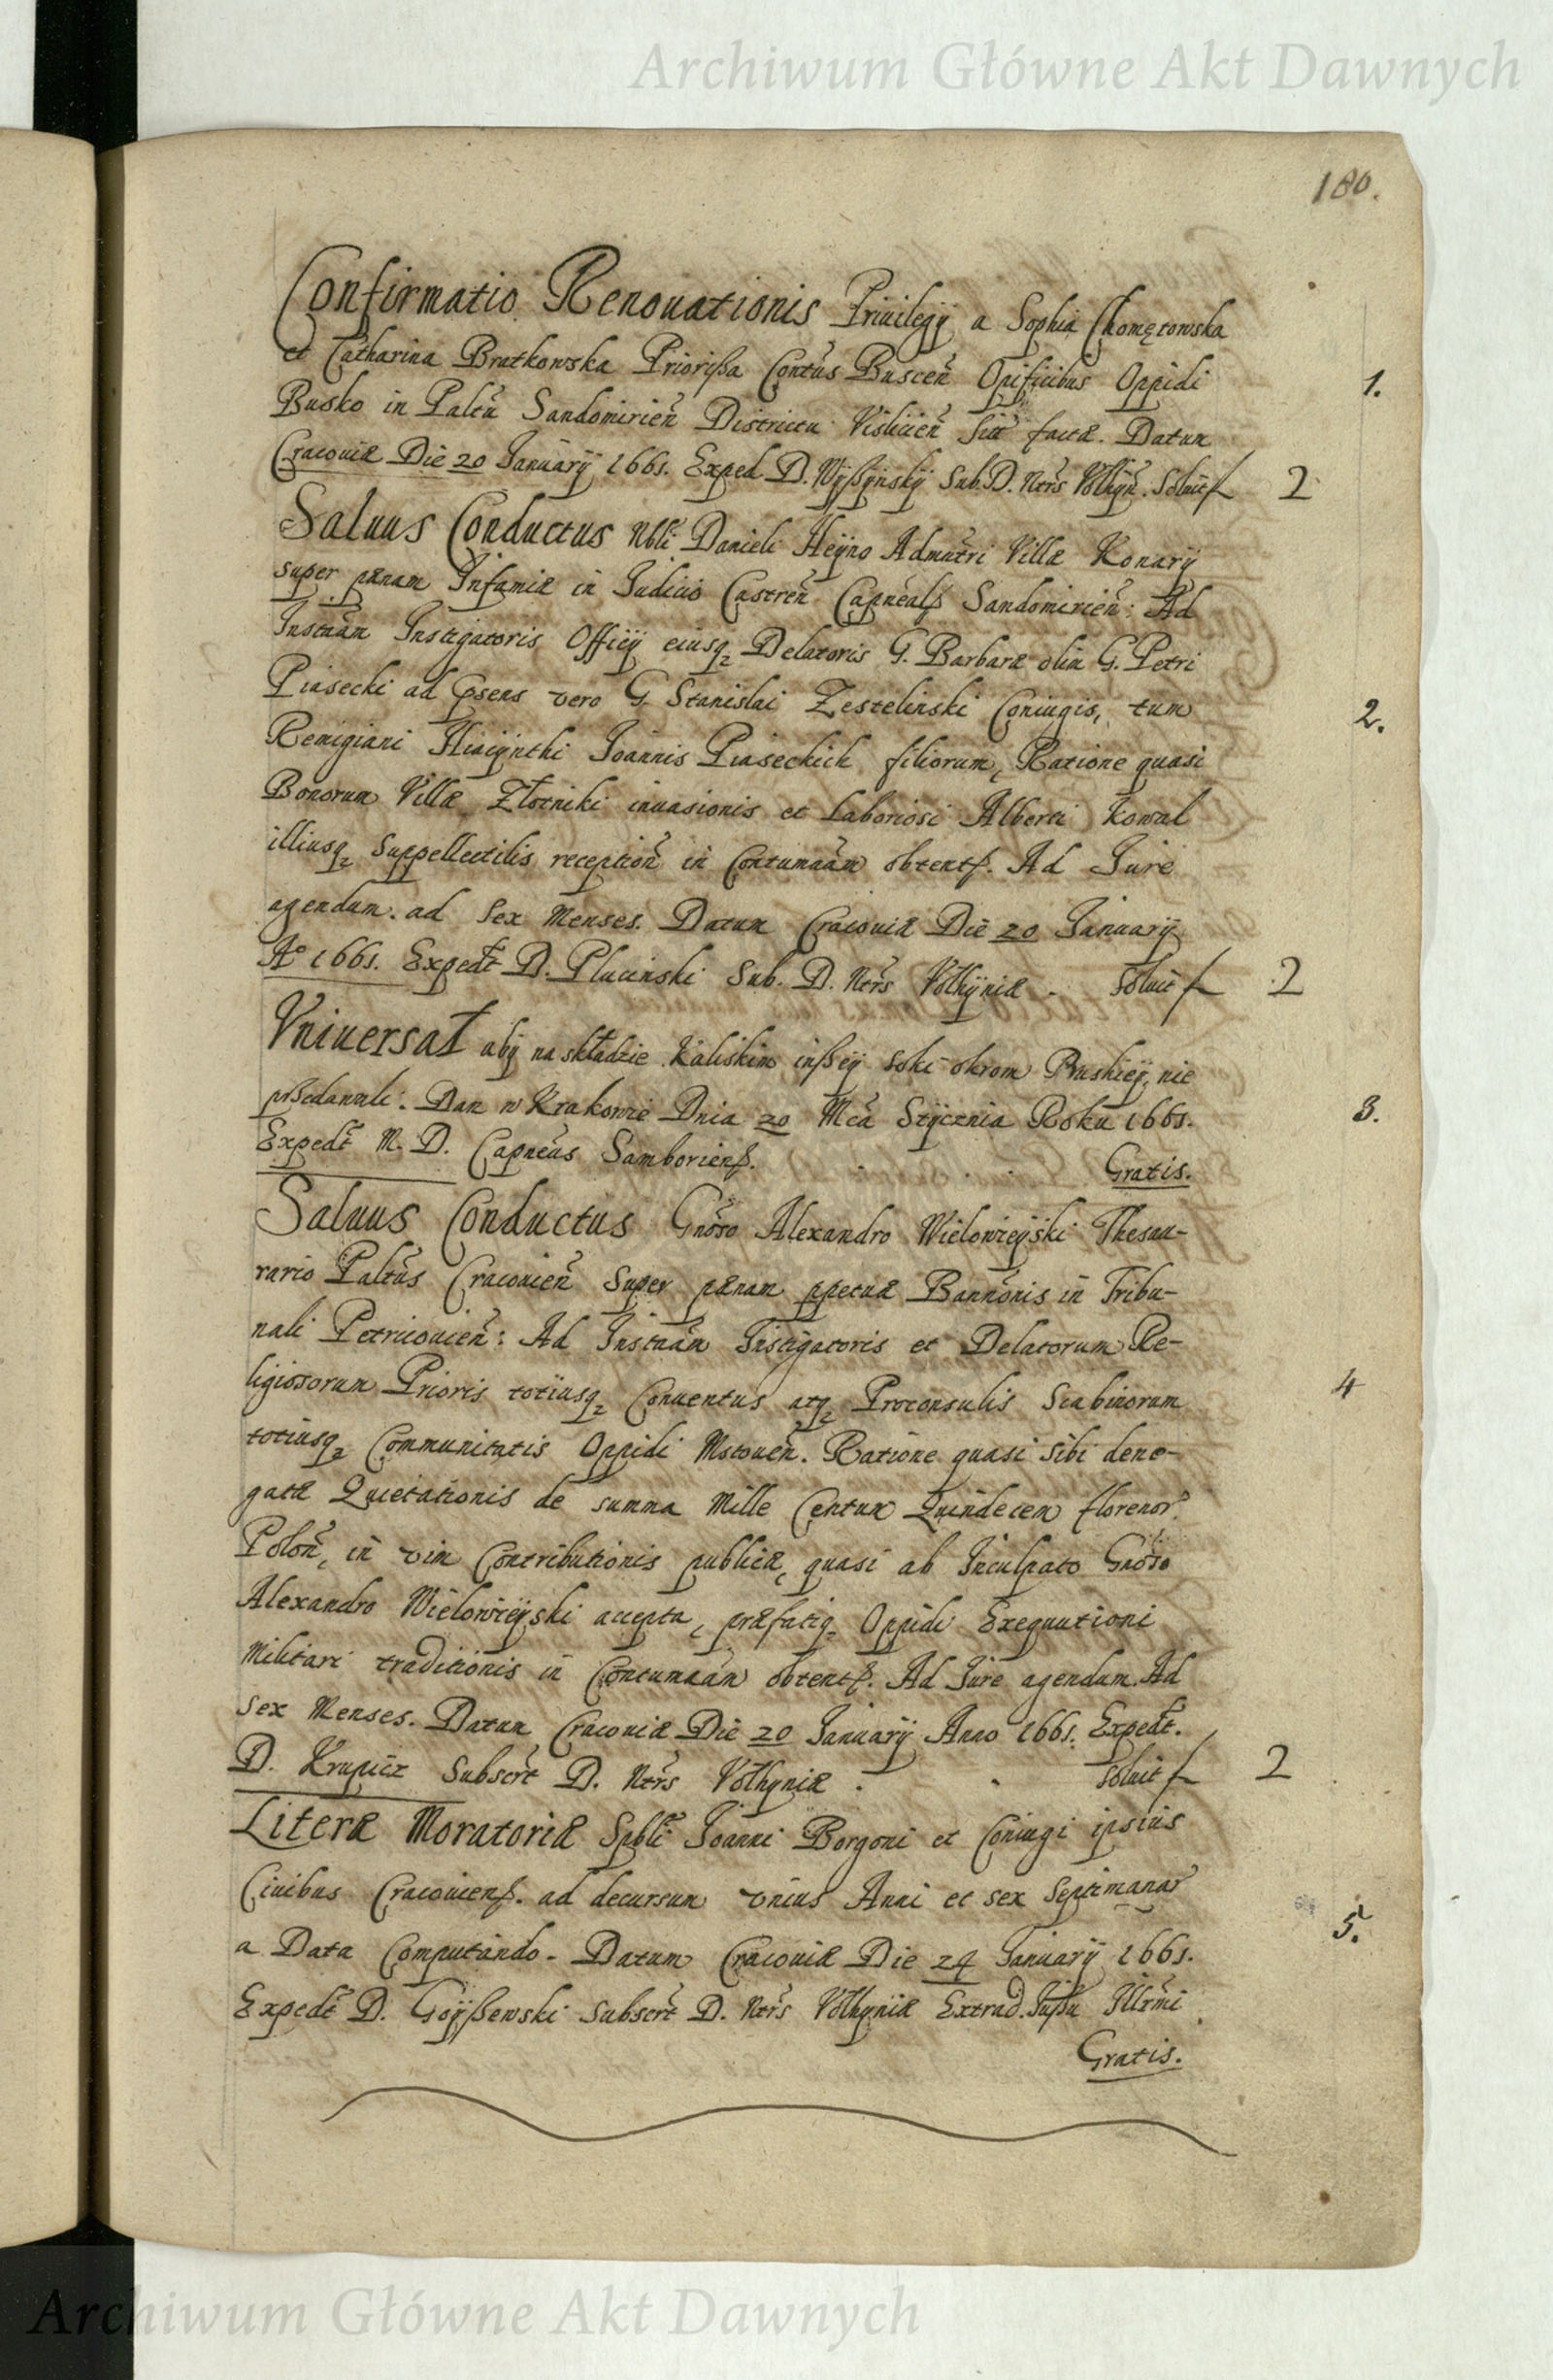 Archiwum Główne Akt Dawnych
180.
Confirmatio Renouationis Priuilegÿ a Sophia Chomętowska
et Catharina Bratkowska Priorißa Contus Buscen Opificibus Oppidi
Busko in Paltu Sandomirien Districtu Vislicien sit factæ. Datum 1.
Cracouiæ Die 20 Januarÿ 1661. Exped D. Wÿßÿnskÿ Sub. D. Ntrs Volhÿn. Soluit f 2
Saluus Conductus Nbli Danieli Heÿno Admntri Villæ Konarÿ
super pænam Infamiæ in Judicio Castren Capneals Sandomirien: Ad
Instnam Instigatoris Officÿ eiusq Delatoris G. Barbaræ olim G. Petri
Piasecki ad psens vero G. Stanislai Zestelinski Coniugis, tum 2.
Remigiani Hiacÿnthi Joannis Piaseckich filiorum, Ratione quasi
Bonorum Villæ Złotniki inuasionis et Laboriosi Alberti Kowal
illiusq Suppellectilis reception in Contumaam obtent. Ad Jure
agendum. ad Sex Menses. Datum Cracouiæ Die 20 Januarÿ
Aº 1661. Expedt D. Plucinski Sub. D. Ntrs Volhÿniæ - Soluit f 2
Vniuersał abÿ na składzie Kaliskim inßeÿ soli okrom Ruskieÿ, nie
pßedawali. Dan w Krakowie Dnia 20 Mca Stÿcznia Roku 1661. 3.
Expedt M. D. Capneus Samboriens. Gratis.
Saluus Conductus Gnoso Alexandro Wielowieÿski Thesau-
rario Paltus Cracouien Super pænam ppetuæ Bannonis in Tribu-
nali Petricouien: Ad Instnam Instigatoris et Delatorum Re-
ligiosorum Prioris totiusq Conuentus atq Proconsulis Scabinorum 4
totiusq Communitatis Oppidi Mstouen. Ratione quasi sibi dene-
gatæ Quietationis de summa Mille Centum Quindecem florenor
Polon, in vim Contributionis publicæ, quasi ab Inculpato Gnoso
Alexandro Wielowieÿski accepta, præfatiq Oppidi Exequutioni
Militari traditionis in Contumaam obtent. Ad Jure agendum. Ad
sex Menses. Datum Cracouiæ Die 20 Januarÿ Anno 1661. Expedt.
D. Krupicz Subscrt D. Ntrs Volhyniæ . Soluit f 2
Literæ Moratoriæ Spbli Joanni Borgoni et Coniugi ipsius
Ciuibus Cracouiens. ad decursum vnius Anni et sex Septimanar
a Data Computando - Datum Cracouiæ Die 24 Januarÿ 1661. 5.
Expedt D. Goÿßewski Subscrt D. Ntrs Volhyniæ Extrad. Jußu Illrmi
Gratis.
Archiwum Główne Akt Dawnych